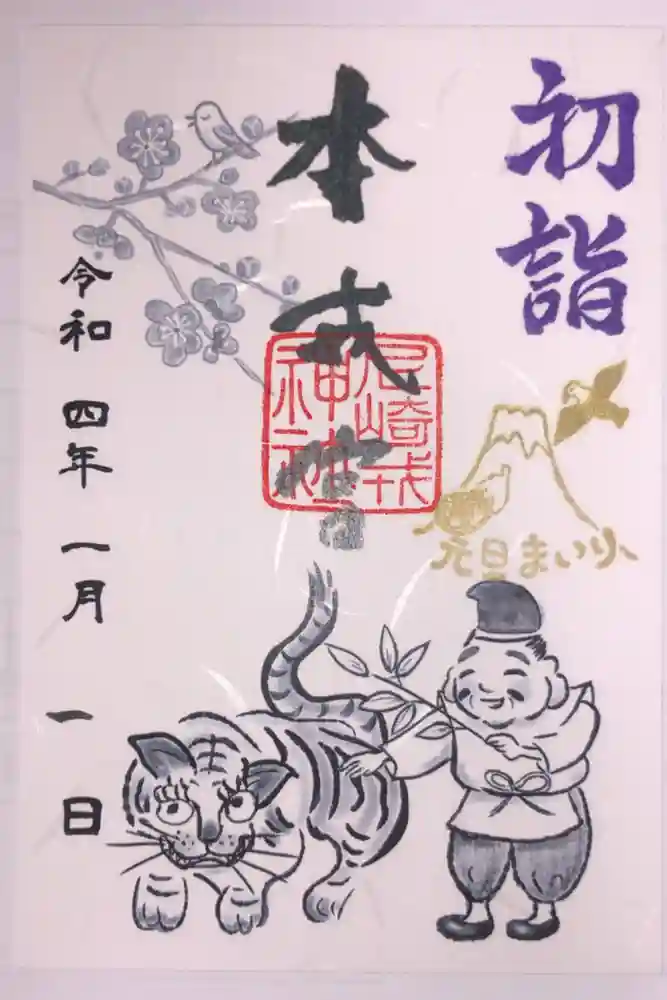 初詣
元旦まいり
本戎
尼崎戎
神社
令和四年一月一日